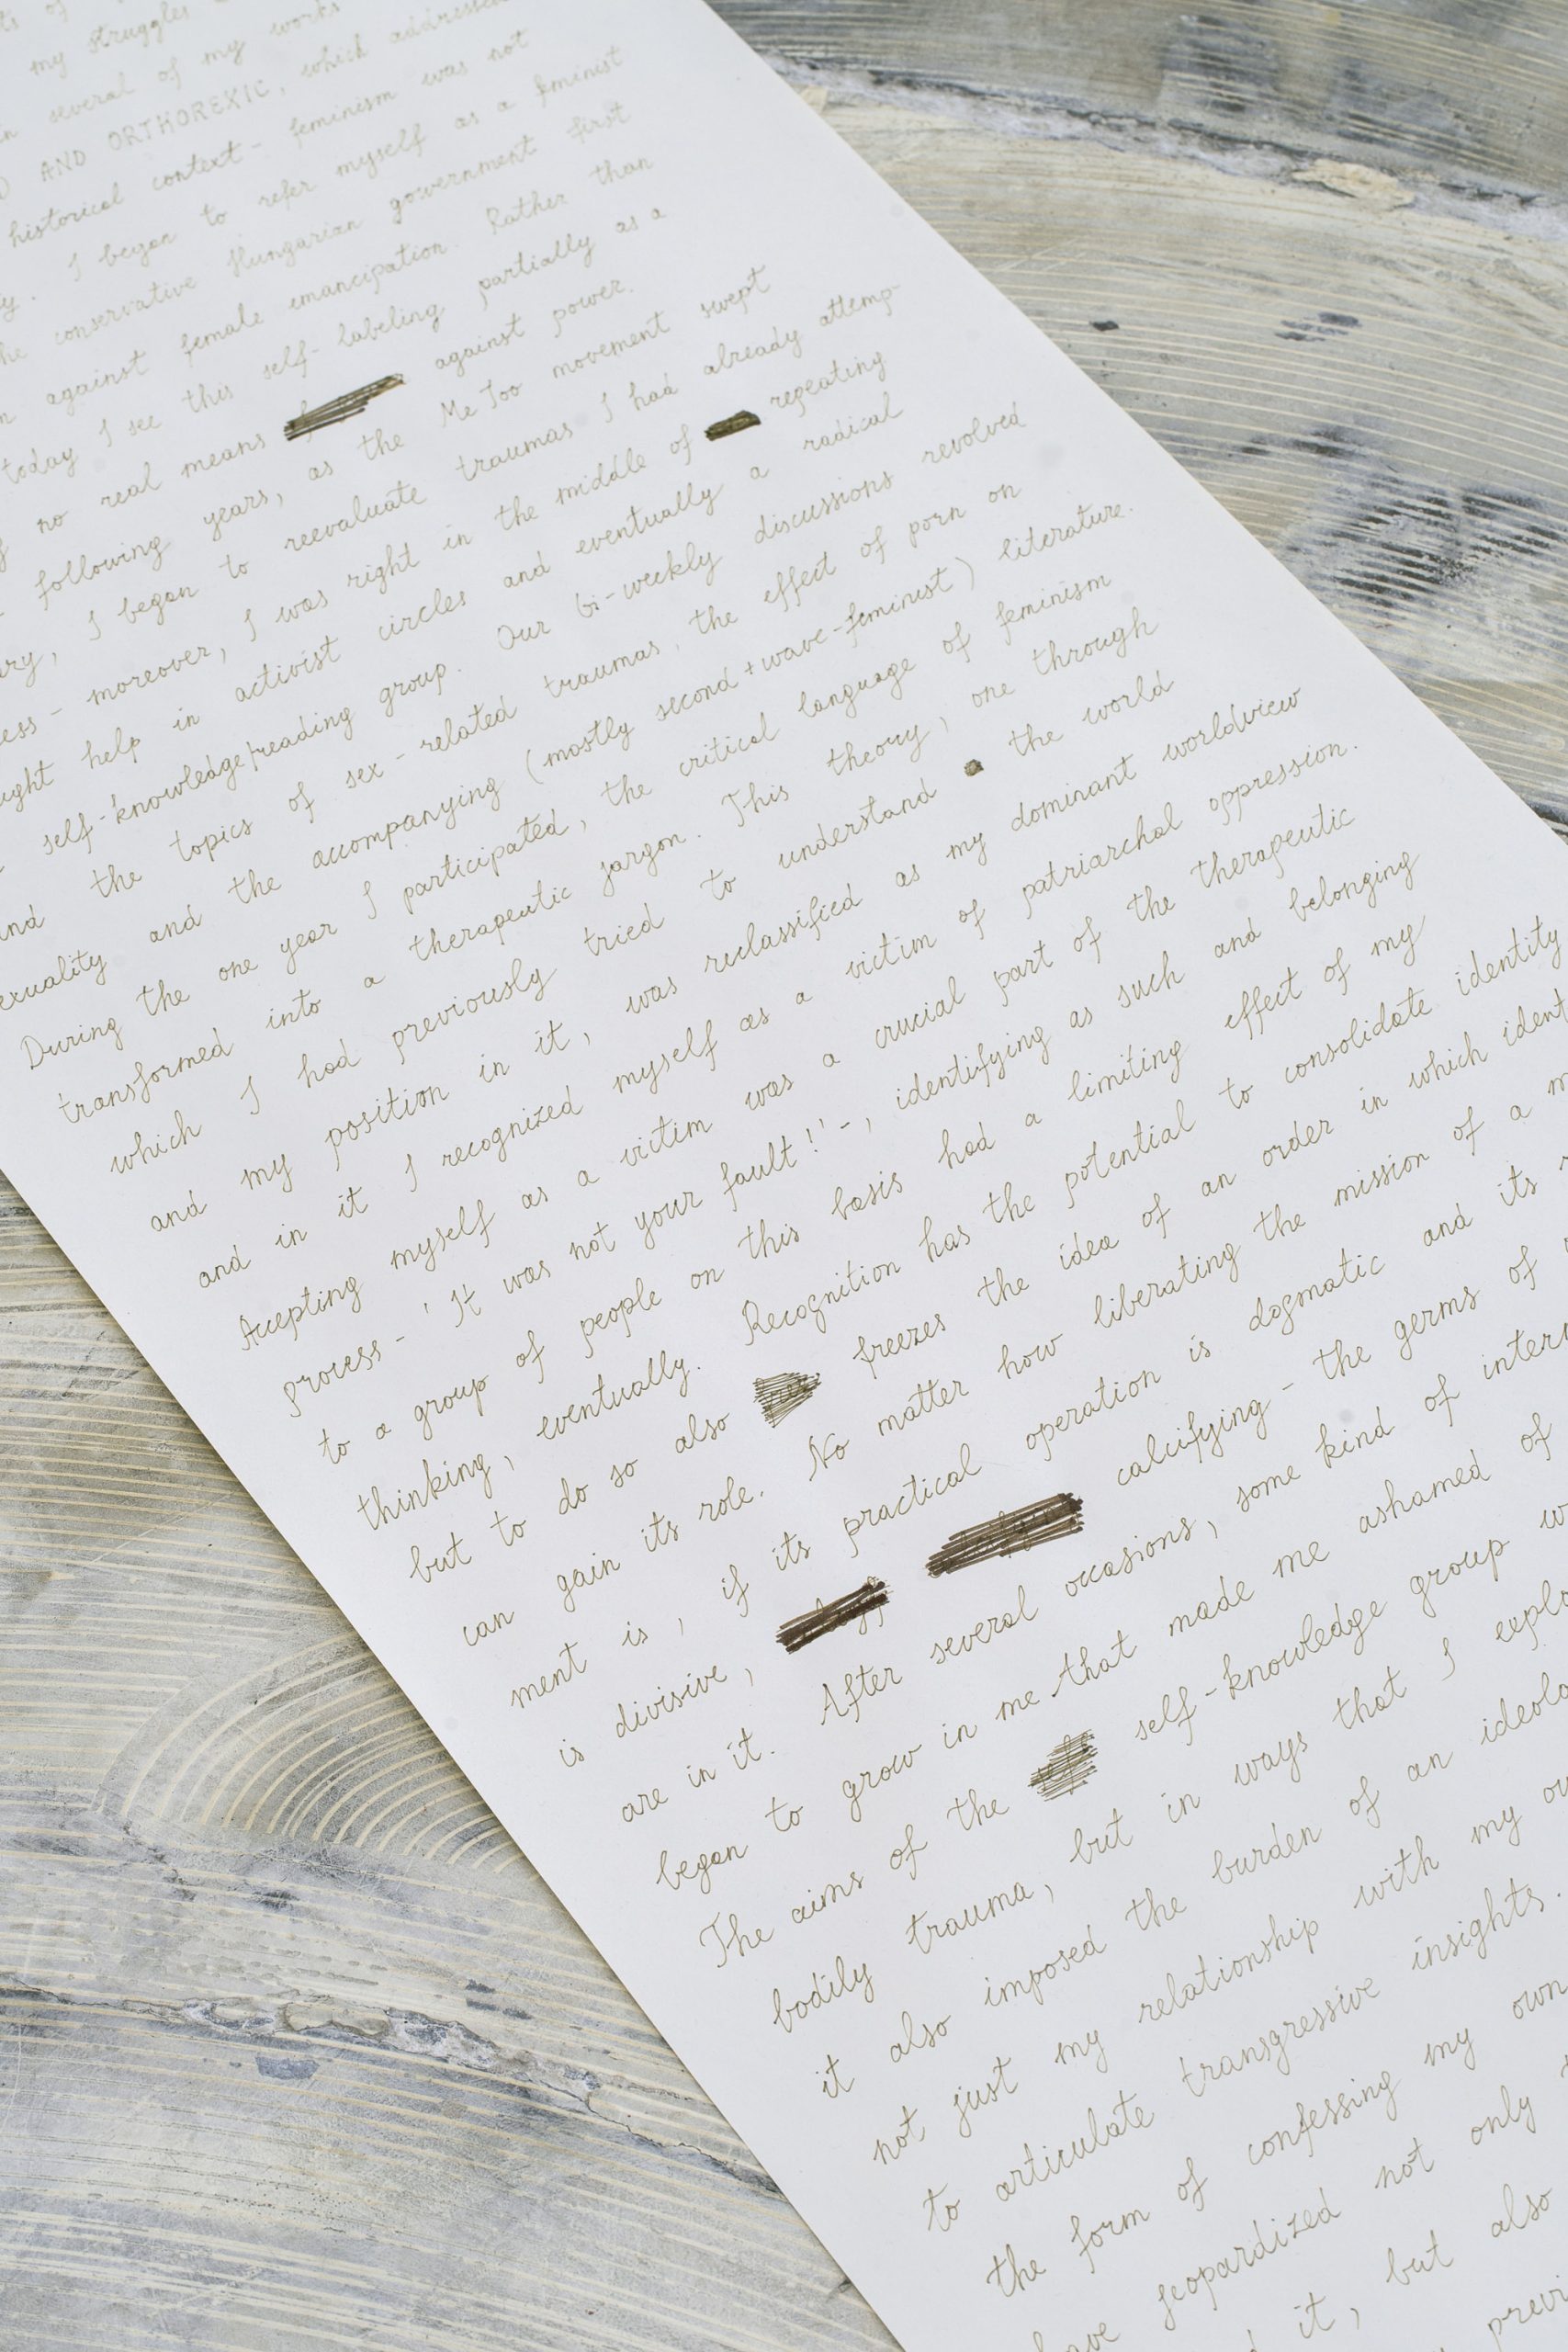 my struggles
several of my works
AND ORTHOREXIC, which addresses
historical context - feminism was not
I began to refer myself as a feminist
conservative Hungarian government first
against female emancipation. Rather than
today I see this self-labeling partially as a
no real means against power.
following years, as the Me Too movement swept
I began to reevaluate traumas I had already attemp-
moreover, I was right in the middle of repeating
help in activist circles and eventually a radical
self-knowledge/reading group. Our bi-weekly discussions revolved
the topics of sex-related traumas, the effect of porn on
and the accompanying (mostly second+wave-feminist) literature.
During the one year I participated, the critical language of feminism
transformed into a therapeutic jargon. This theory, one through
which I had previously tried to understand the world
and my position in it, was reclassified as my dominant worldview
and in it I recognized myself as a victim of patriarchal oppression.
Accepting myself as a victim was a crucial part of the therapeutic
process - 'It was not your fault!' -, identifying as such and belonging
to a group of people on this basis had a limiting effect of my
thinking, eventually. Recognition has the potential to consolidate identity
but to do so also freezes the idea of an order in which ident
can gain its role. No matter how liberating the mission of a m
ment is, if its practical operation is dogmatic and its
is divisive, calcifying - the germs of
are in it. After several occasions, some kind of inter
began to grow in me that made me ashamed of
The aims of the self-knowledge group w
bodily trauma, but in ways that I explo
it also imposed the burden of an ideolo
not just my relationship with my ow
to articulate transgressive insights.
the form of confessing my own
jeopardized not only
it, but also
previ